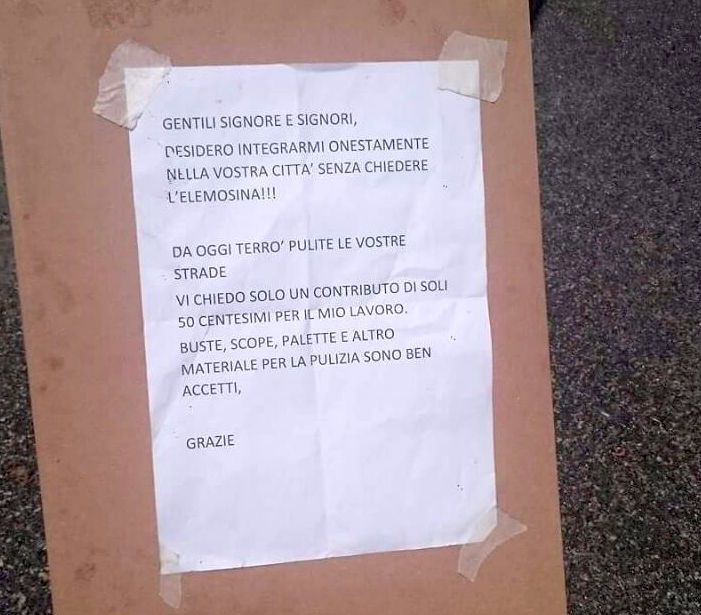 GENTILI SIGNORE E SIGNORI,
DESIDERO INTEGRARMI ONESTAMENTE
NELLA VOSTRA CITTA' SENZA CHIEDERE
L'ELEMOSINA!!!
DA OGGI TERRO' PULITE LE VOSTRE
STRADE
VI CHIEDO SOLO UN CONTRIBUTO DI SOLI
50 CENTESIMI PER IL MIO LAVORO.
BUSTE, SCOPE, PALETTE E ALTRO
MATERIALE PER LA PULIZIA SONO BEN
ACCETTI,
GRAZIE